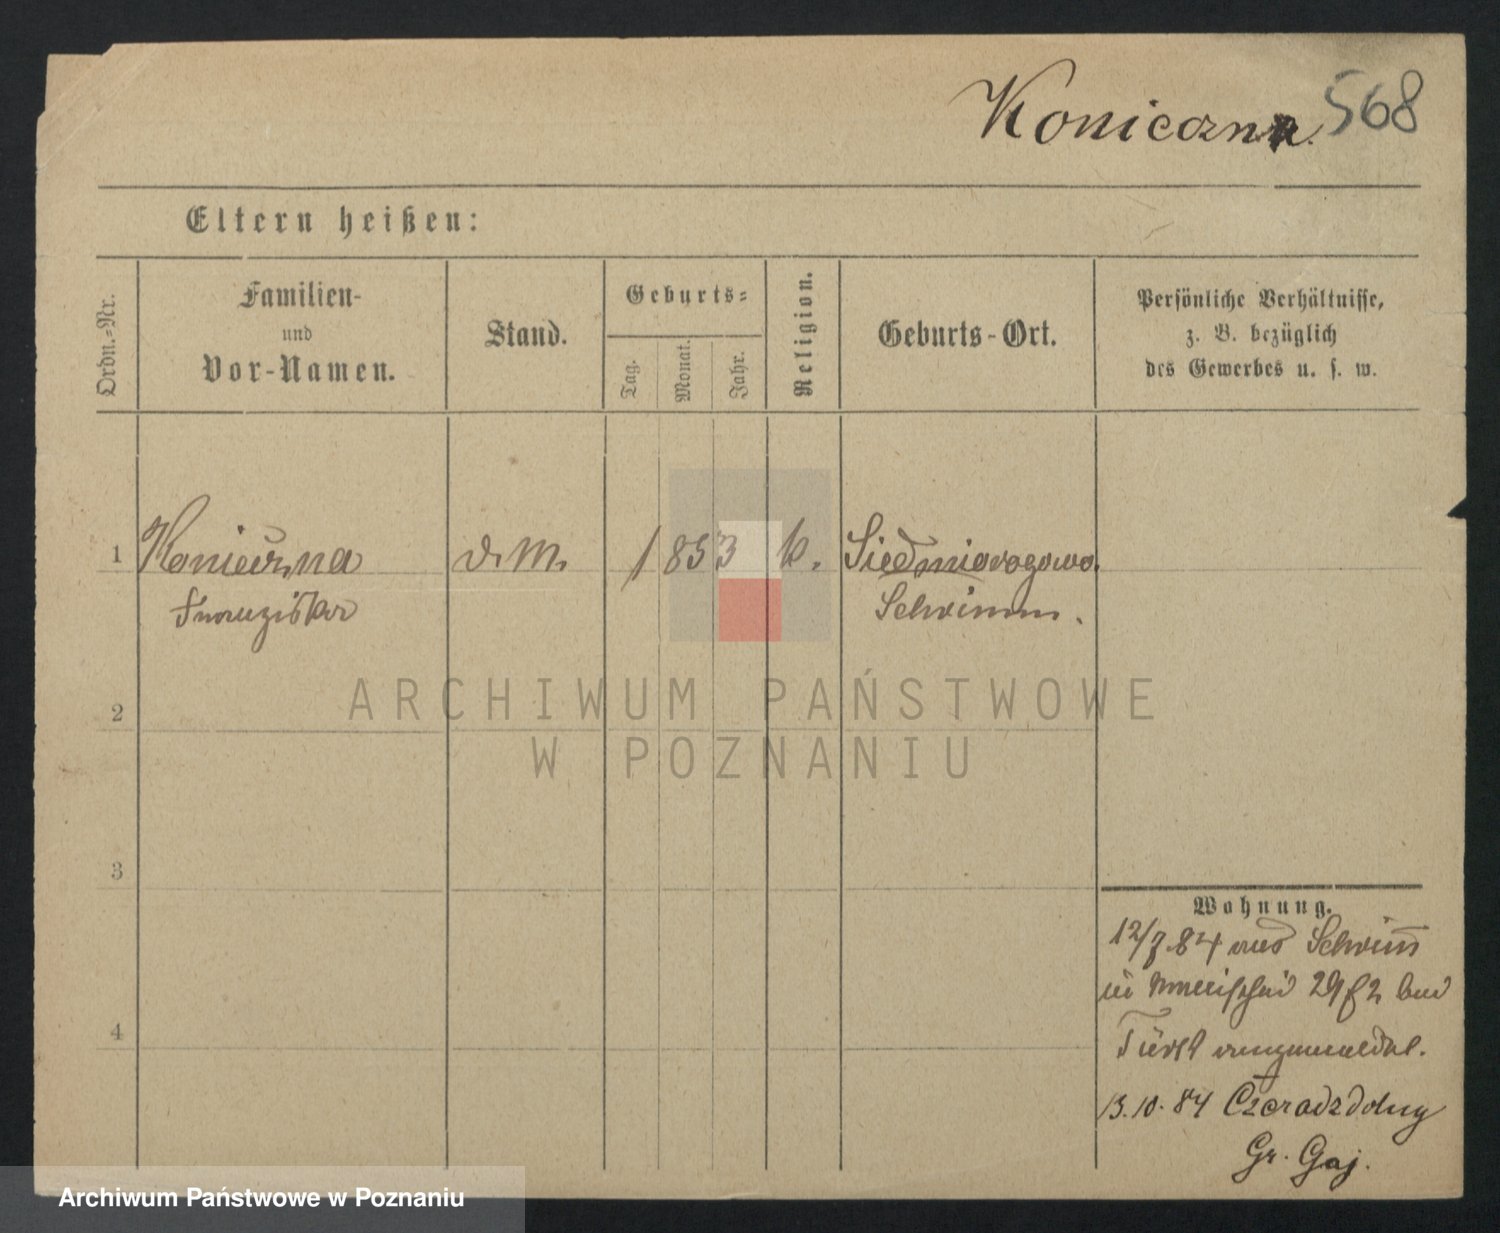 Konieczna. 568
Eltern heißen:
Ordn.-Nr.
Familien-
und
Vor-Namen.
Stand.
Geburts-
Tag.
Monat.
Jahr.
Religion.
Geburts-Ort.
Persönliche Verhältnisse,
z. B. bezüglich
des Gewerbes u. s. w.
1 Konieczna d. M. 1853 k. Siedmiorogowo.
Franziska Schrimm.
2
3
4
Wohnung.
12/7 84 aus Schrimm
in 29/82 bei
Türk angemeldet.
13.10.84 Czeradz dolny
Gr. Gaj.
ARCHIWUM PAŃSTWOWE
W POZNANIU
Archiwum Państwowe w Poznaniu